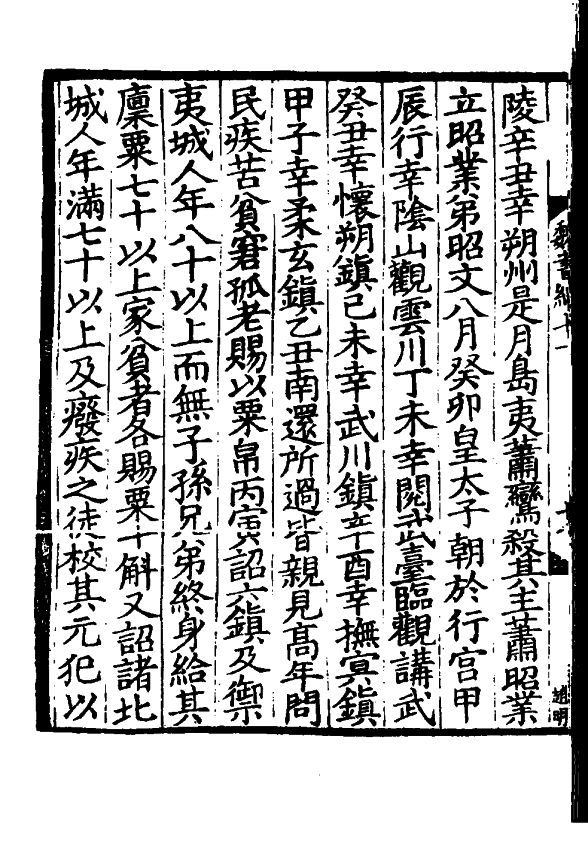 陵辛丑幸朔州是月島夷蕭鸞殺其主蕭昭業
立昭業弟昭文八月癸卯皇太子朝於行宮甲
辰行幸陰山觀雲川丁未幸閱武臺臨觀講武
癸丑幸懷朔鎮己未幸武川鎮辛酉幸撫冥鎮
甲子幸柔玄鎮乙丑南還所過皆親見高年問
民疾苦貧窘孤老賜以粟帛丙寅詔六鎮及御
夷城人年八十以上而無子孫兄弟終身給其
廩粟七十以上家貧者各賜粟十斛又詔諸北
城人年滿七十以上及癈疾之徒校其元犯以